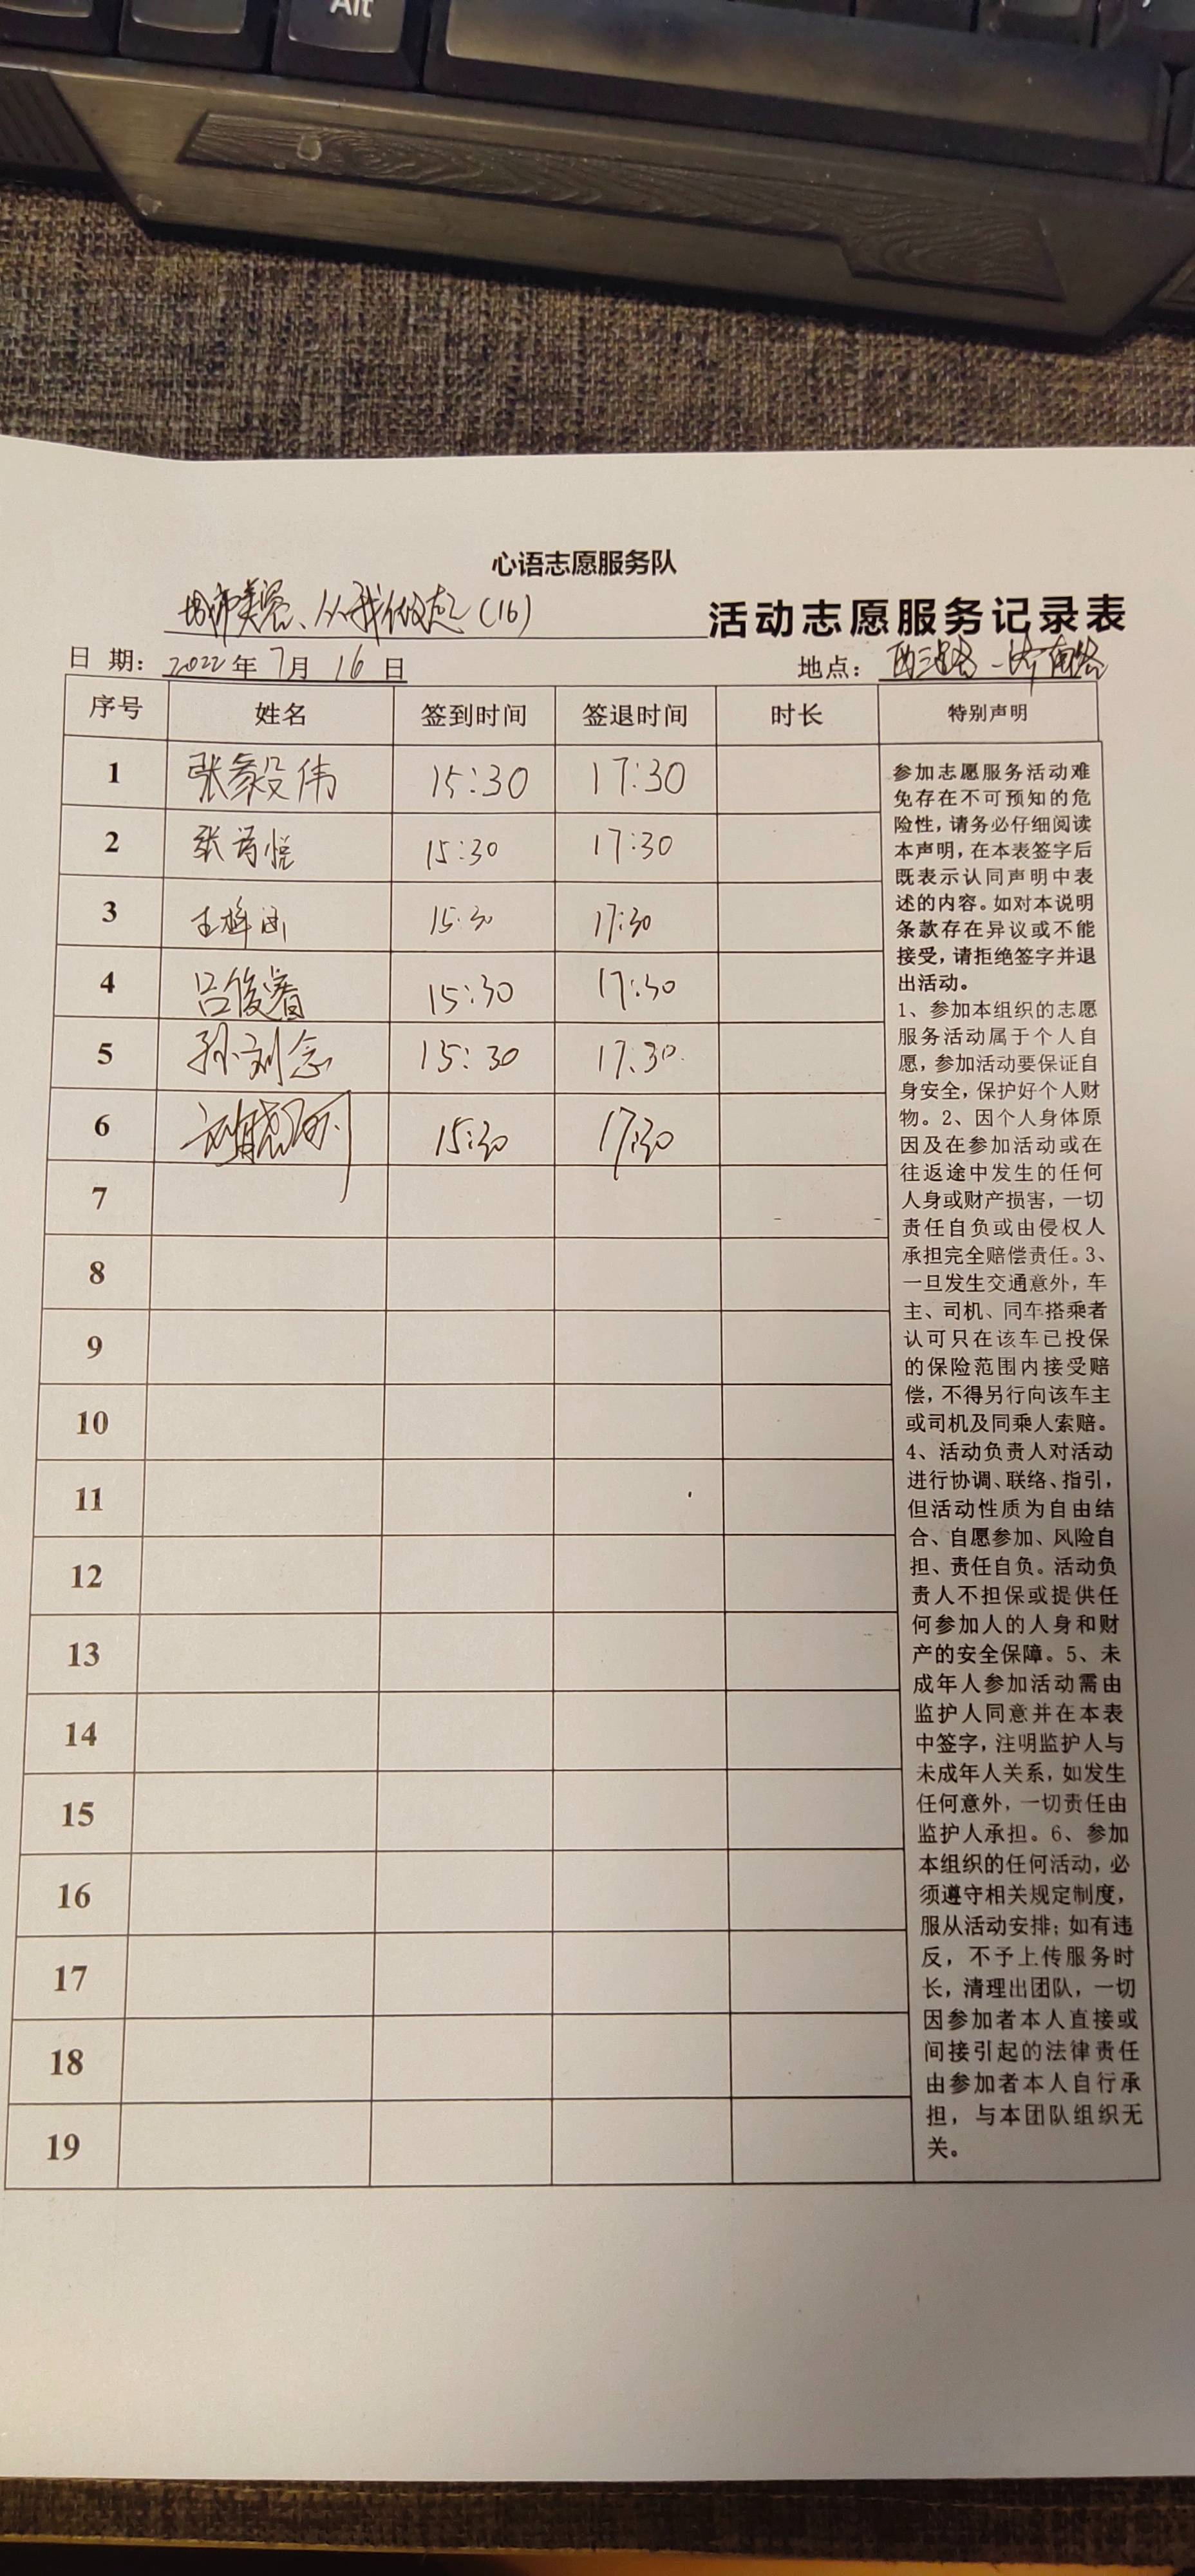 Alt
心语志愿服务队
城市美容、从我做起(16) 活动志愿服务记录表
日 期: 2022年 7月 16 日 地点: 西三路-济南路
序号 姓名 签到时间 签退时间 时长 特别声明
1 张毅伟 15:30 17:30
2 张诗悦 15:30 17:30
3 15:30 17:30
4 吕俊睿 15:30 17:30
5 孙刘念 15:30 17:30
6 15:30 17:30
7
8
9
10
11
12
13
14
15
16
17
18
19
参加志愿服务活动难
免存在不可预知的危
险性,请务必仔细阅读
本声明,在本表签字后
既表示认同声明中表
述的内容。如对本说明
条款存在异议或不能
接受,请拒绝签字并退
出活动。
1、参加本组织的志愿
服务活动属于个人自
愿,参加活动要保证自
身安全,保护好个人财
物。2、因个人身体原
因及在参加活动或在
往返途中发生的任何
人身或财产损害,一切
责任自负或由侵权人
承担完全赔偿责任。3、
一旦发生交通意外,车
主、司机、同车搭乘者
认可只在该车已投保
的保险范围内接受赔
偿,不得另行向该车主
或司机及同乘人索赔。
4、活动负责人对活动
进行协调、联络、指引,
但活动性质为自由结
合、自愿参加、风险自
担、责任自负。活动负
责人不担保或提供任
何参加人的人身和财
产的安全保障。5、未
成年人参加活动需由
监护人同意并在本表
中签字,注明监护人与
未成年人关系,如发生
任何意外,一切责任由
监护人承担。6、参加
本组织的任何活动,必
须遵守相关规定制度,
服从活动安排;如有违
反,不予上传服务时
长,清理出团队,一切
因参加者本人直接或
间接引起的法律责任
由参加者本人自行承
担,与本团队组织无
关。